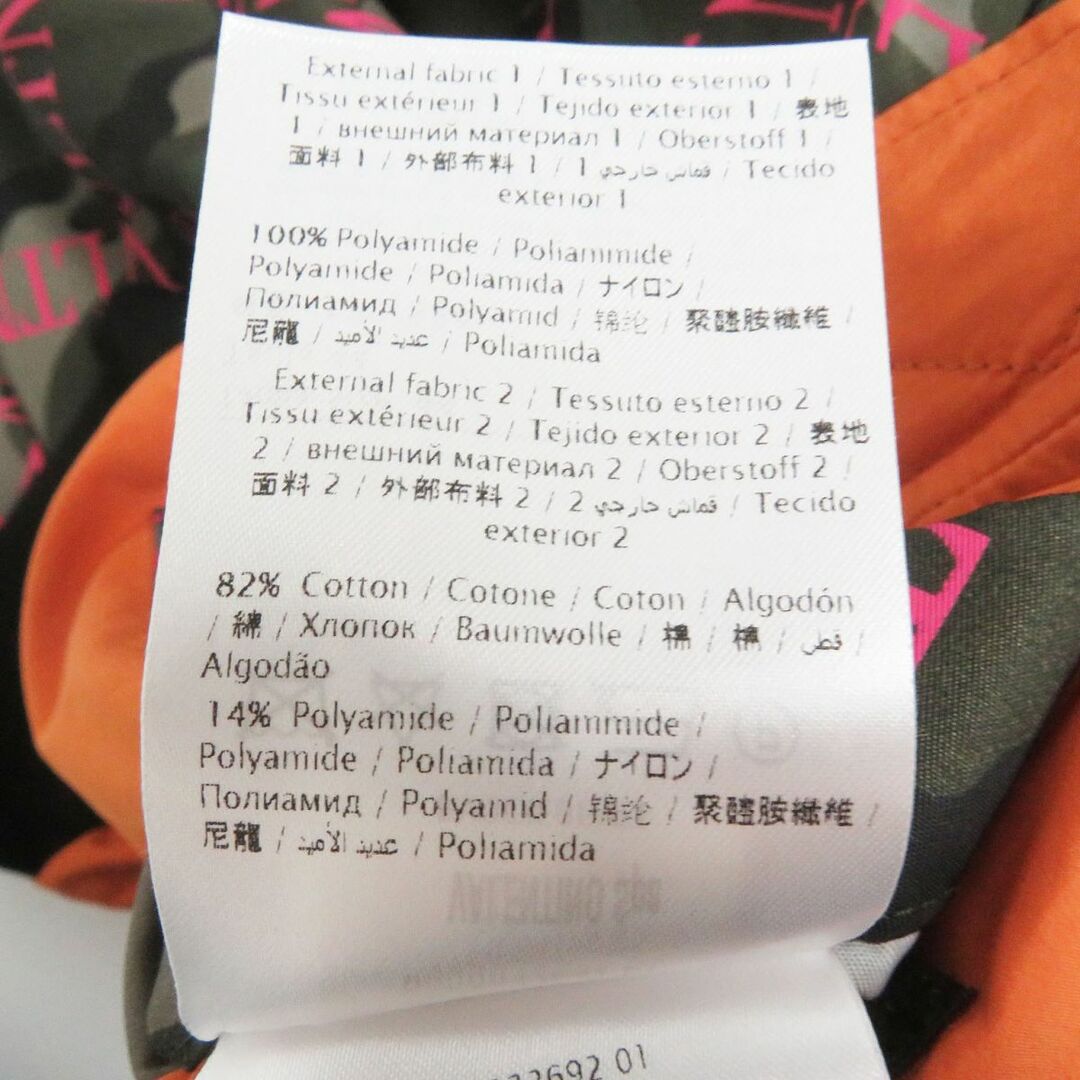 External fabric 1 / Tessuto esterno 1 /
Tissu extérieur 1 / Tejido exterior 1 / 表地
1 / внешний материал 1 / Oberstoff 1 /
面料 1 / 外部布料 1 / 1 قماش خارجي / Tecido
exterior 1
100% Polyamide / Poliammide /
Polyamide / Poliamida / ナイロン /
Полиамид / Polyamid / 锦纶 / 聚醯胺纖維 /
尼龍 / عديد الأميد / Poliamida
External fabric 2 / Tessuto esterno 2 /
Tissu extérieur 2 / Tejido exterior 2 / 表地
2 / внешний материал 2 / Oberstoff 2 /
面料 2 / 外部布料 2 / 2 قماش خارجي / Tecido
exterior 2
82% Cotton / Cotone / Coton / Algodón
/ 綿 / Хлопок / Baumwolle / 棉 / 棉 / قطن /
Algodão
14% Polyamide / Poliammide /
Polyamide / Poliamida / ナイロン /
Полиамид / Polyamid / 锦纶 / 聚醯胺纖維 /
尼龍 / عديد الأميد / Poliamida
01
VLTN